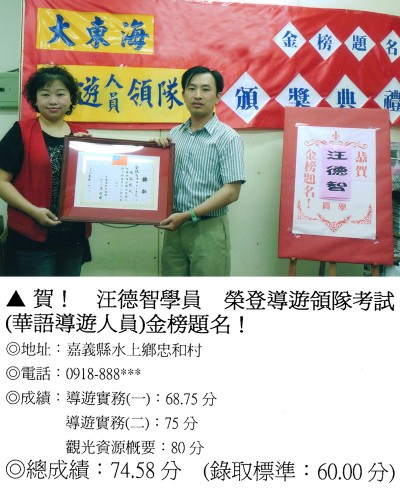 大東海
金榜題名
導遊人員領隊
頒獎典禮
恭賀
汪德智
學員
金榜題名!
▲賀! 汪德智學員 榮登導遊領隊考試
(華語導遊人員)金榜題名!
◎地址:嘉義縣水上鄉忠和村
◎電話:0918-888***
◎成績:導遊實務(一):68.75 分
導遊實務(二):75 分
觀光資源概要:80 分
◎總成績:74.58 分 (錄取標準:60.00 分)